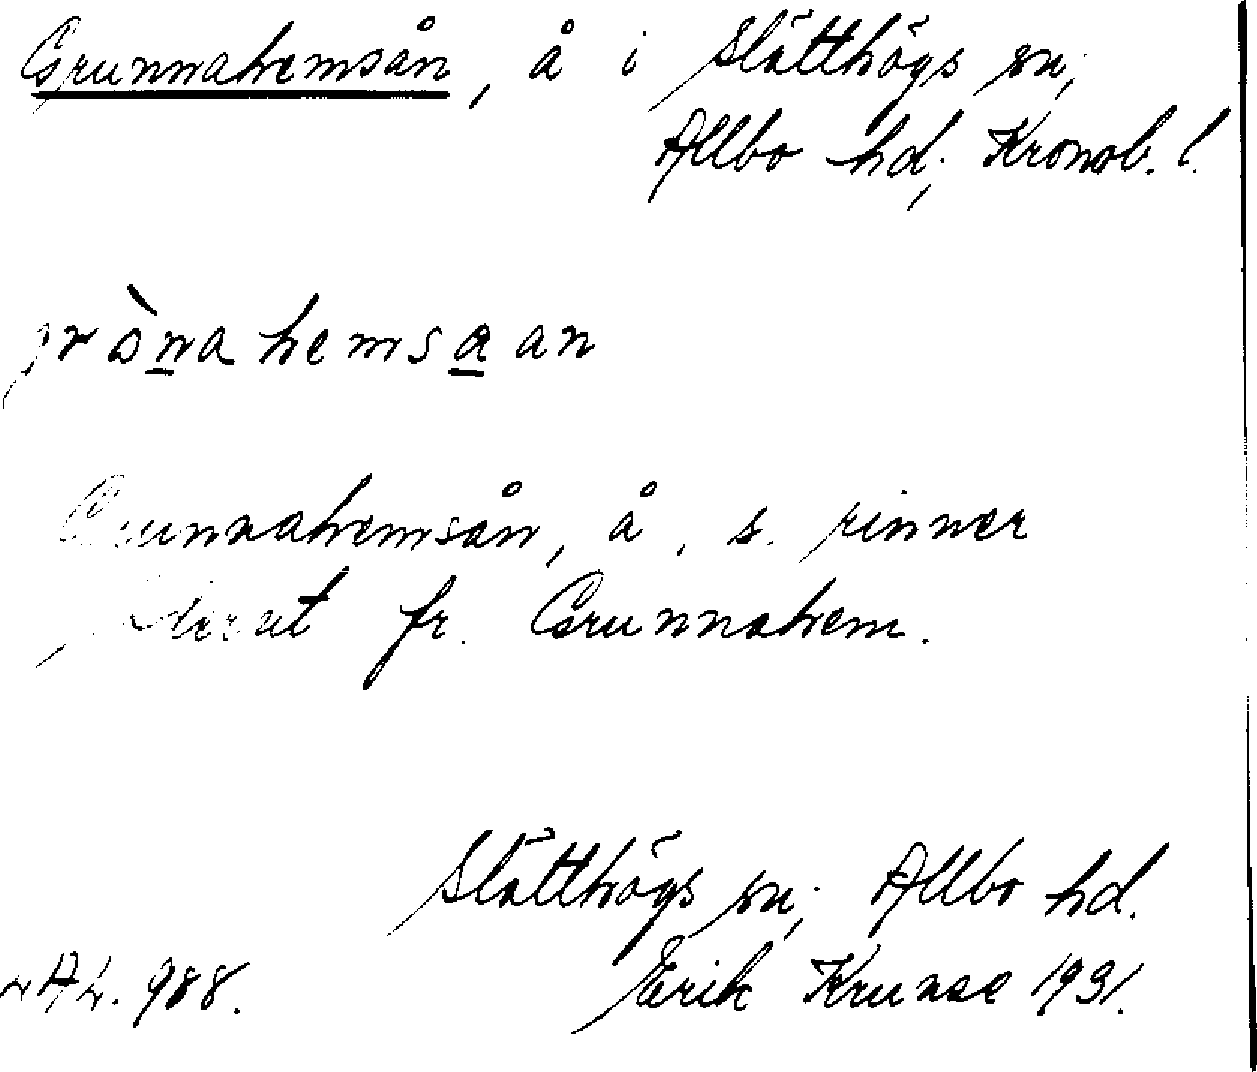 Grunnahemsån, å i Slätthögs sn;
Allbo hd; Kronob. l.
grònahemsaan
Grunnahemsån, å, s. rinner
fr. Grunnahem.
Slätthögs sn; Allbo hd.
988. Erik Kruuse 1931.